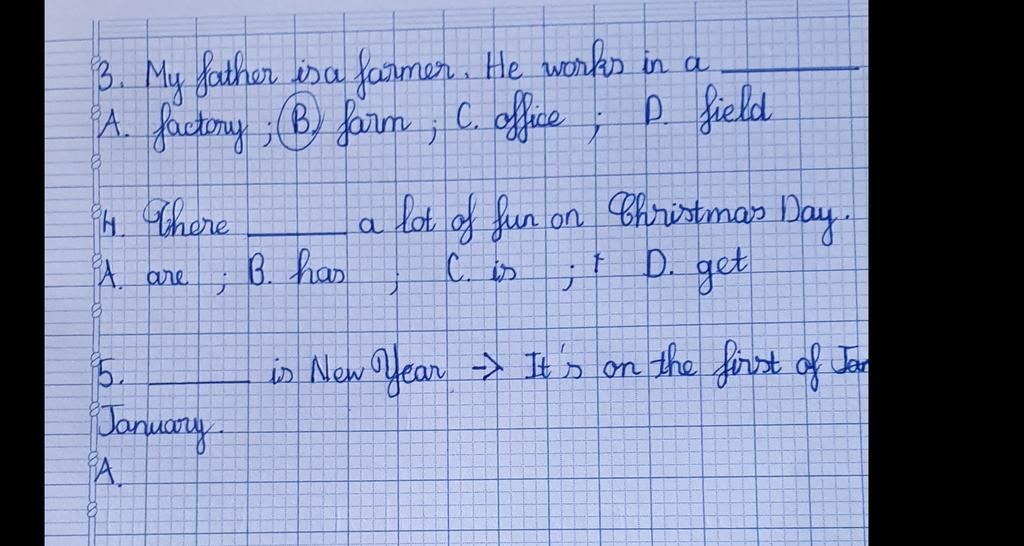 3. My father is a farmer. He works in a ________
A. factory ; B) farm ; C. office ; D. field
4. There ______ a lot of fun on Christmas Day.
A. are ; B. has ; C. is ; D. get
5. ______ is New Year → It's on the first of Jan
January.
A.